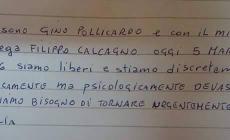 SONO GINO POLLICARDO E CON IL MI
EGA FILIPPO CALCAGNO OGGI 5 MAR
SIAMO LIBERI E STIAMO DISCRETAM
CAMENTE MA PSICOLOGICAMENTE DEVAS
IAMO BISOGNO DI TORNARE URGENTEMENTE
LIA